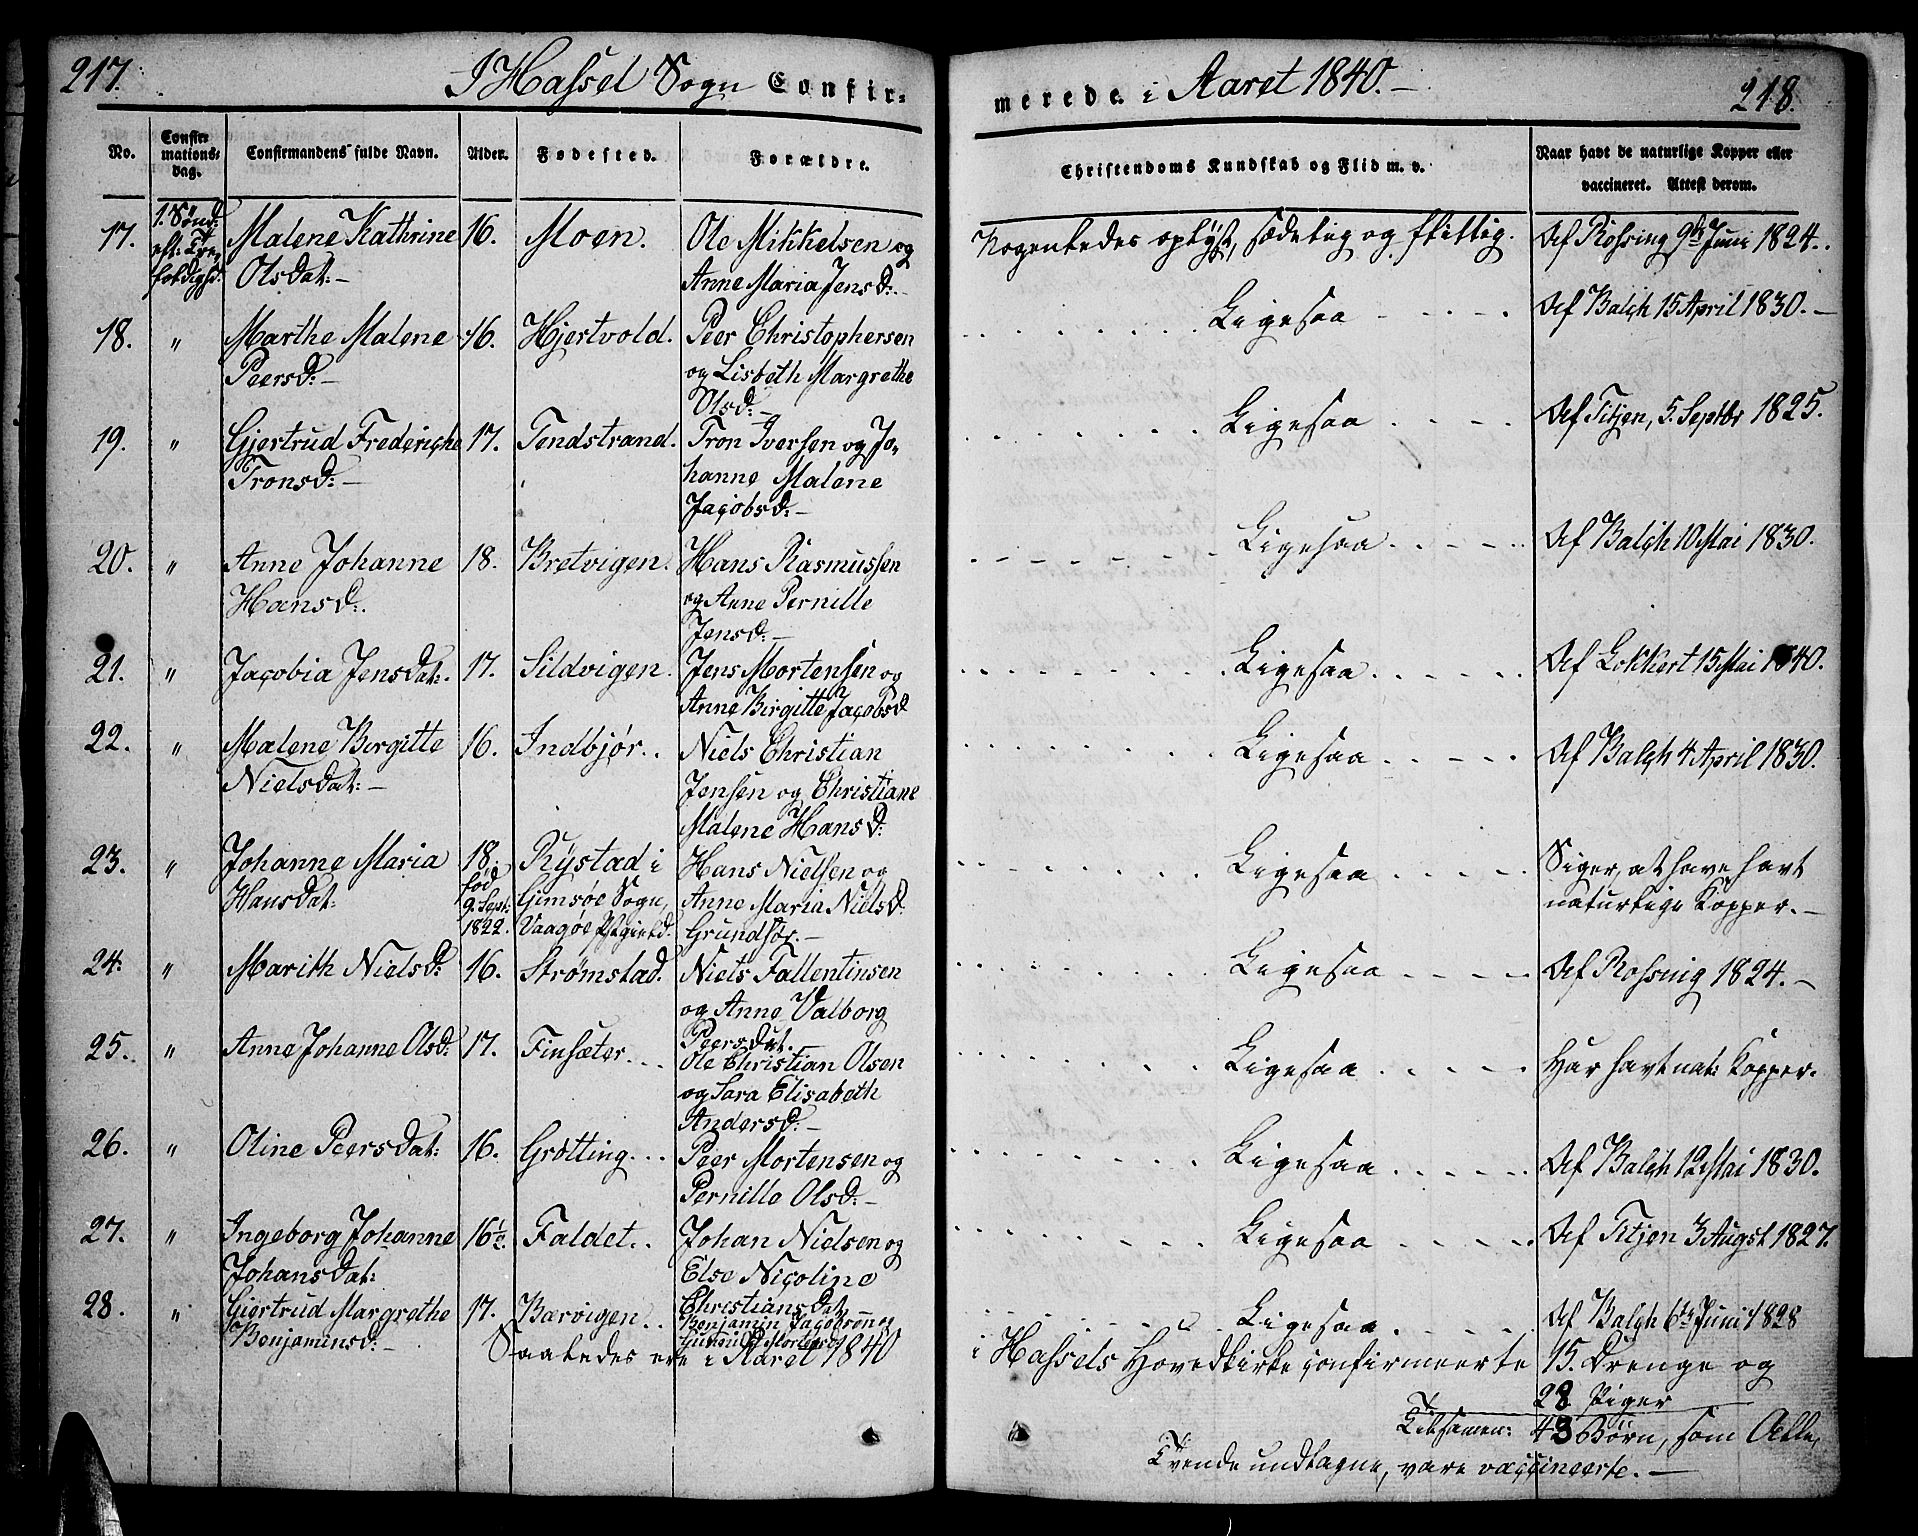 217.
I Hassel Sogn Confir-
merede i Aaret 1840.-
218.
No.
Confir-
mations-
dag.
Confirmandens fulde Navn.
Alder.
Fødested.
Forældre.
Christendoms Kundskab og Flid m. v.
Naar havt de naturlige Kopper eller
vaccineret. Attest derom.
17.
1. Sønd:
eft: Tre-
foldighd.
Malene Kathrine
Olsdat:-
16.
Moen.
Ole Mikkelsen og
Anne Maria Jensd:-
Nogenledes oplyst, sædelig og flittig.
Af Rossing 9de Juni 1824.
18.
"
Marthe Malene
Peersd:-
16.
Hjertvold.
Peer Christophersen
og Lisbeth Margrethe
Olsd:-
Ligesaa
Af Balch 15 April 1830.-
19.
"
Gjertrud Frederiche
Tronsd:-
17.
Tendstrand.
Tron Iversen og Jo-
hanne Malene
Jacobsd:-
Ligesaa
Af Titjen, 5. Septbr 1825.
20.
"
Anne Johanne
Hansd:
18.
Bretvigen.
Hans Rasmussen
og Anne Pernille
Jensd:-
Ligesaa
Af Balch 10 Mai 1830.
21.
"
Jacobia Jensdat:
17.
Sildvigen.
Jens Mortensen og
Anne Birgitte Jacobsd
Ligesaa
Af Lokkert 15 Mai 1840.
22.
"
Malene Birgitte
Nielsdat:-
16.
Indbjør.
Niels Christian
Jensen og Christiane
Malene Hansd:
Ligesaa
Af Balch 4 April 1830.
23.
"
Johanne Maria
Hansdat:
18.
fød
9. Sept:
1822.
Rystad i
Gimsøe Sogn,
Vaagøe Pstgield.
Hans Nielsen og
Anne Maria Nielsd:
Grundfør.-
Ligesaa
Siger, at have havt
naturlige Kopper.-
24.
"
Marith Nielsd:
16.
Strømstad.
Niels Fallentinsen
og Anne Valborg
Peersdat.
Ligesaa
Af Rossing 1824.-
25.
"
Anne Johanne Olsd:
17.
Finsæter.
Ole Christian Olsen
og Sara Elisabeth
Andersd:-
Ligesaa
Har havt nat: Kopper.
26.
"
Oline Peersdat:
16.
Grøtting.
Peer Mortensen og
Pernille Olsd:-
Ligesaa
Af Balch 12 Mai 1830.
27.
"
Ingeborg Johanne
Johansdat:
16½
Faldet.
Johan Nielsen og
Else Nicoline
Christiansdat
Ligesaa
Af Titjen 3 Augst 1827.
28.
"
Giertrud Margrethe
Benjaminsd:-
17.
Bærvigen.
Benjamin Jacobsen og
Ligesaa
Af Balch 6te Juni 1828
Saaledes ere i Aaret 1840
i Hassels Hovedkirke confirmeerte 15. Drenge og
28 Piger
Tilsamen: 43 Børn, som Alle,
Tvende undtagne, vare vaccineerte.-